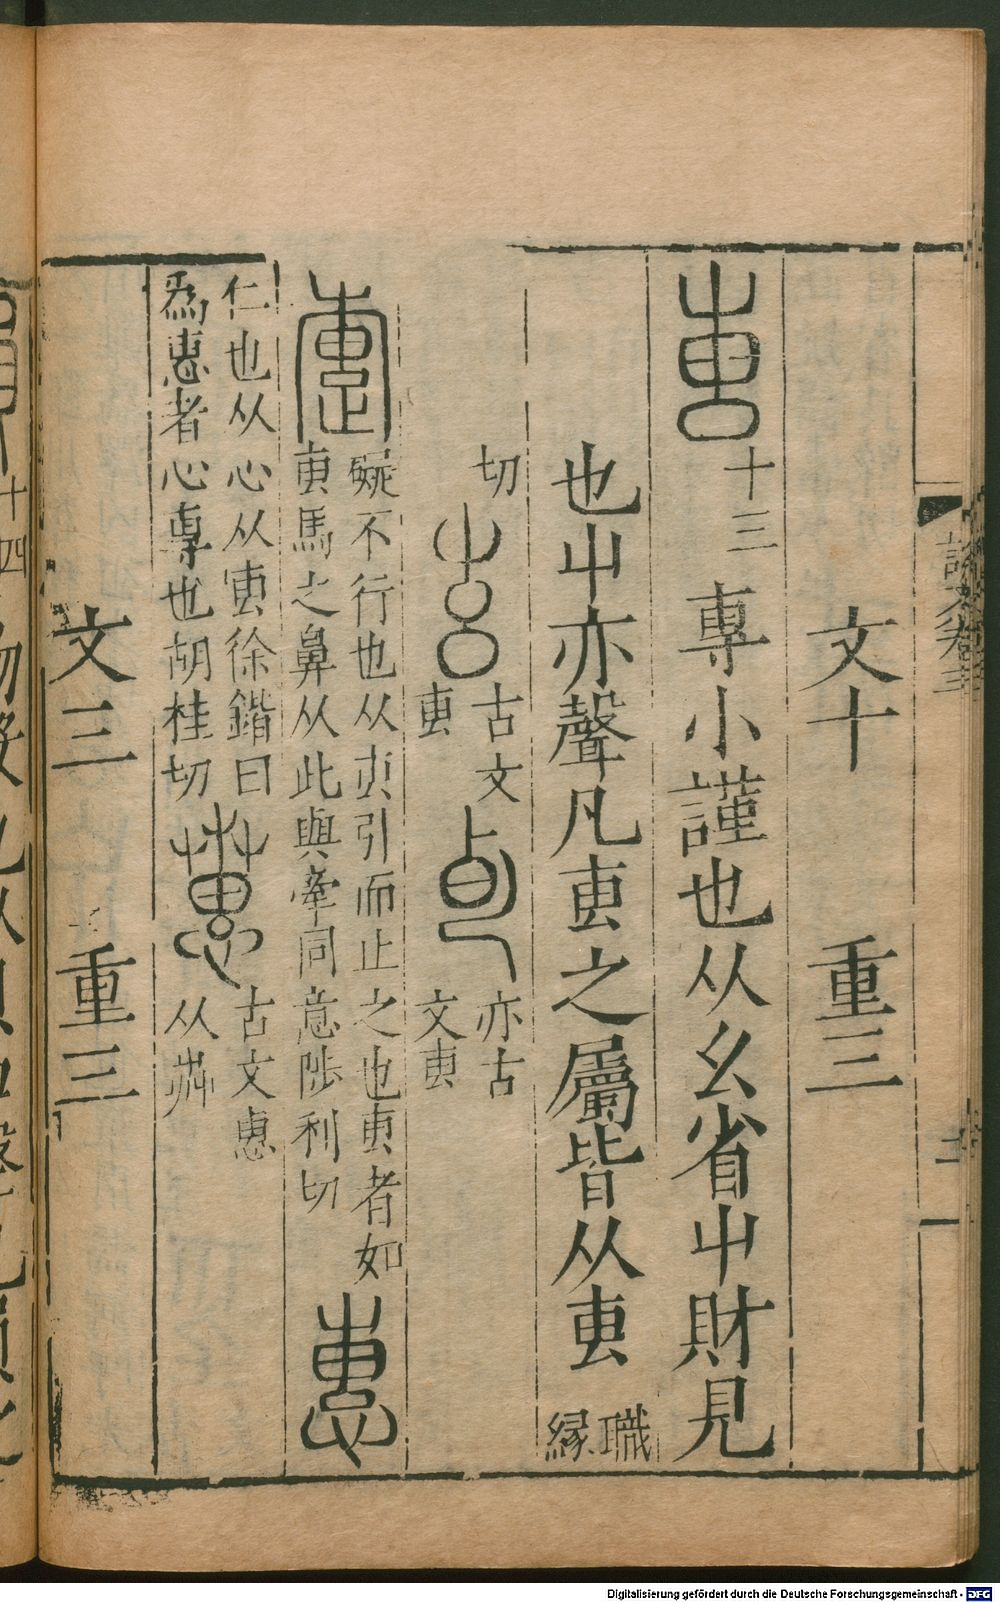 文十 重三
叀 十三 專小謹也从幺省屮財見
也屮亦聲凡叀之屬皆从叀 職緣
切 古文叀 亦古文叀
疐 礙不行也从叀引而止之也叀者如叀馬之鼻从此與牽同意陟利切 惠
仁也从心从叀徐鍇曰爲惠者心專也胡桂切 古文惠从芔
文三 重三
十四
Digitalisierung gefördert durch die Deutsche Forschungsgemeinschaft - DFG